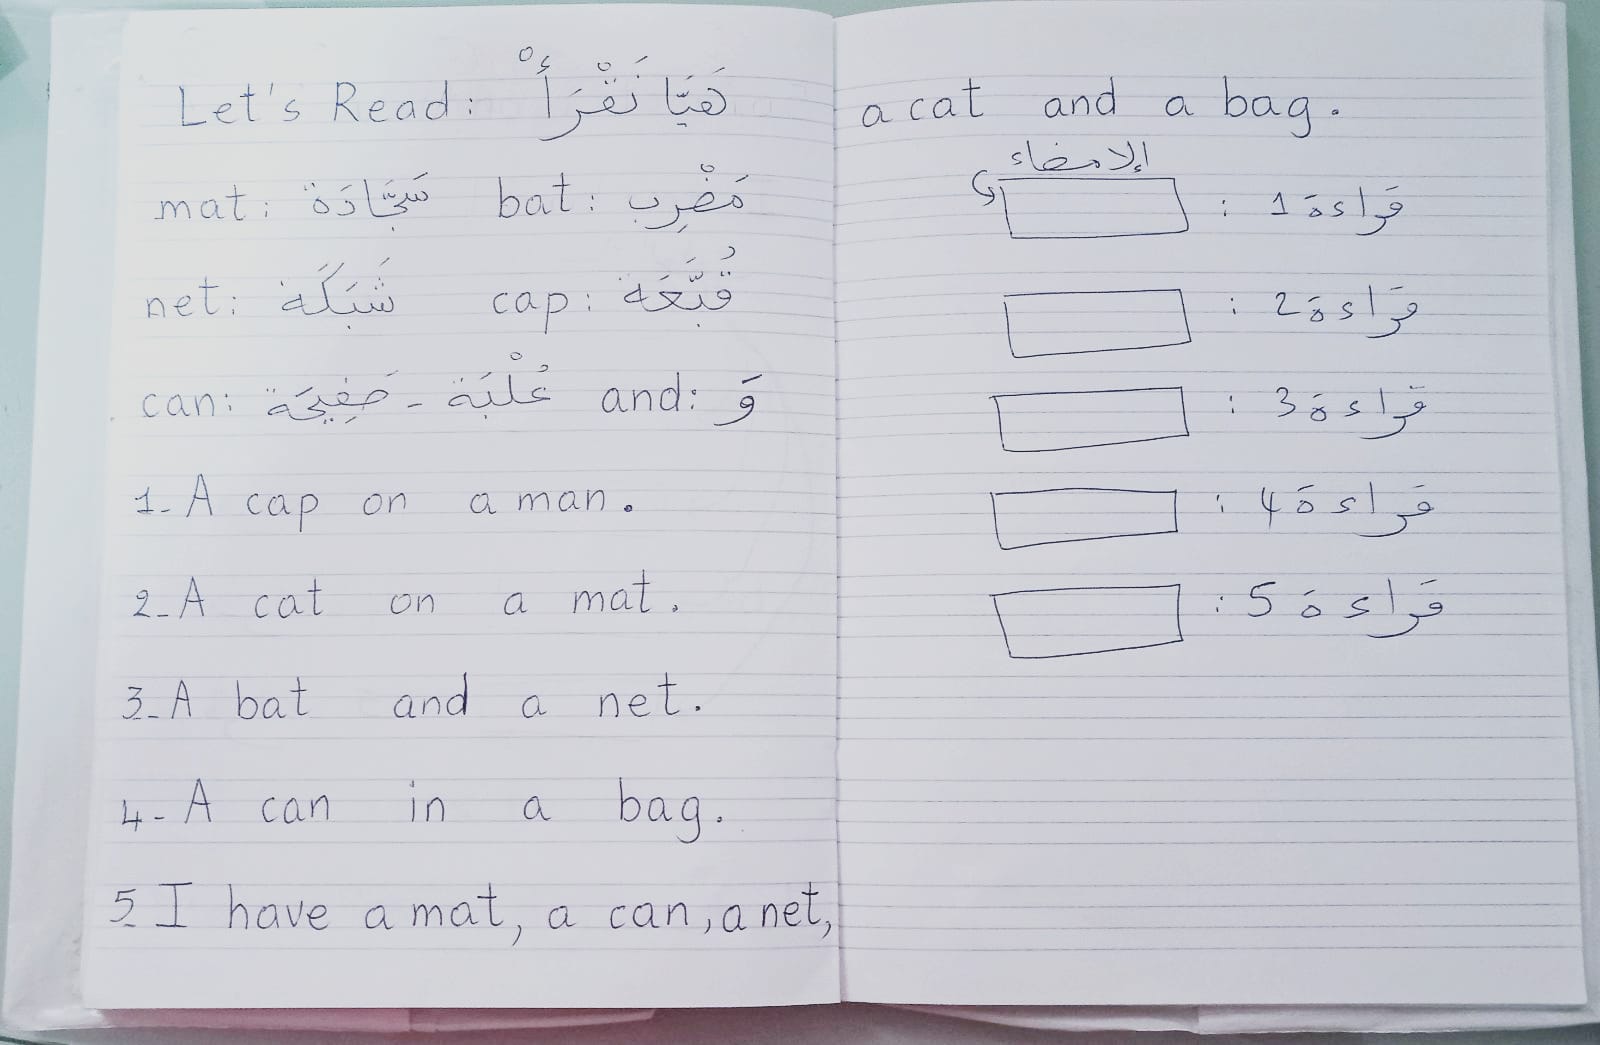 Let's Read: هَيَّا نَقْرَأْ
mat: سَجَّادَة bat: مَضْرِب
net: شَبَكَة cap: قُبَّعَة
can: عُلْبَة - صَفِيحَة and: وَ
1- A cap on a man.
2- A cat on a mat.
3- A bat and a net.
4- A can in a bag.
5- I have a mat, a can, a net,
a cat and a bag.
الإمضاء
قراءة 1 :
قراءة 2 :
قراءة 3 :
قراءة 4 :
قراءة 5 :